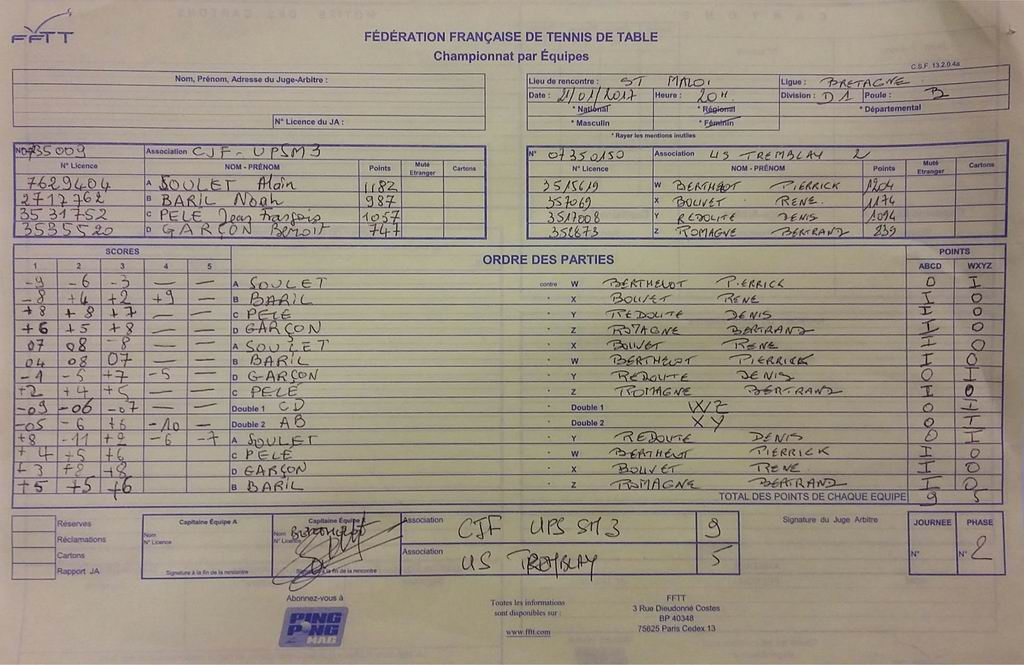 FFTT
FÉDÉRATION FRANÇAISE DE TENNIS DE TABLE
Championnat par Équipes
C.S.F. 13.2.0.4a
Nom, Prénom, Adresse du Juge-Arbitre :
N° Licence du JA :
Lieu de rencontre : ST MALO
Ligue : BRETAGNE
Date : 21/01/2017 Heure : 20H
Division : D1 Poule : B
* National * Régional * Départemental
* Masculin * Féminin
* Rayer les mentions inutiles
Association CJF - UPSM3
N° 07350150 Association US TREMBLAY 2
N° Licence NOM - PRÉNOM Points Muté Etranger Cartons
7629404 A SOULET Alain 1182
2717762 B BARIL Noah 987
3531752 C PELE Jean François 1057
3535520 D GARÇON Benoit 747
N° Licence NOM - PRÉNOM Points Muté Etranger Cartons
3515619 W BERTHELOT PIERRICK 1204
357069 X BOUVET RENE 1174
3517008 Y REDOUTE DENIS 1094
352873 Z ROMAGNE BERTRAND 839
SCORES ORDRE DES PARTIES POINTS
1 2 3 4 5 ABCD WXYZ
-9 -6 -3 — — A SOULET contre W BERTHELOT PIERRICK 0 I
-8 +4 +2 +9 — B BARIL - X BOUVET RENE I 0
+8 +8 +7 — — C PELE - Y REDOUTE DENIS I 0
+6 +5 +8 — — D GARÇON - Z ROMAGNE BERTRAND I 0
07 08 -8 — — A SOULET - X BOUVET RENE I 0
04 08 07 — — B BARIL - W BERTHELOT PIERRICK I 0
-1 -5 +7 -5 — D GARÇON - Y REDOUTE DENIS 0 I
+2 +4 +5 — — C PELE - Z ROMAGNE BERTRAND I 0
-09 -06 -07 — — Double 1 CD - Double 1 WZ 0 I
-05 -6 +6 -10 — Double 2 AB - Double 2 XY 0 I
+8 -11 +9 -6 -7 A SOULET - Y REDOUTE DENIS 0 I
+4 +5 +6 C PELE - W BERTHELOT PIERRICK I 0
+3 +8 +8 D GARÇON - X BOUVET RENE I 0
+5 +5 +6 B BARIL - Z ROMAGNE BERTRAND I 0
TOTAL DES POINTS DE CHAQUE EQUIPE 9 5
Réserves
Réclamations
Cartons
Rapport JA
Capitaine Équipe A
Nom
N° Licence
Signature à la fin de la rencontre
Capitaine Équipe
Nom
N° Licence
Signature à la fin de la rencontre
Association CJF UPSM3 9
Association US TREMBLAY 5
Signature du Juge Arbitre
JOURNEE PHASE
N° N° 2
Abonnez-vous à
PING PONG MAG
Toutes les informations
sont disponibles sur :
www.fftt.com
FFTT
3 Rue Dieudonné Costes
BP 40348
75625 Paris Cedex 13